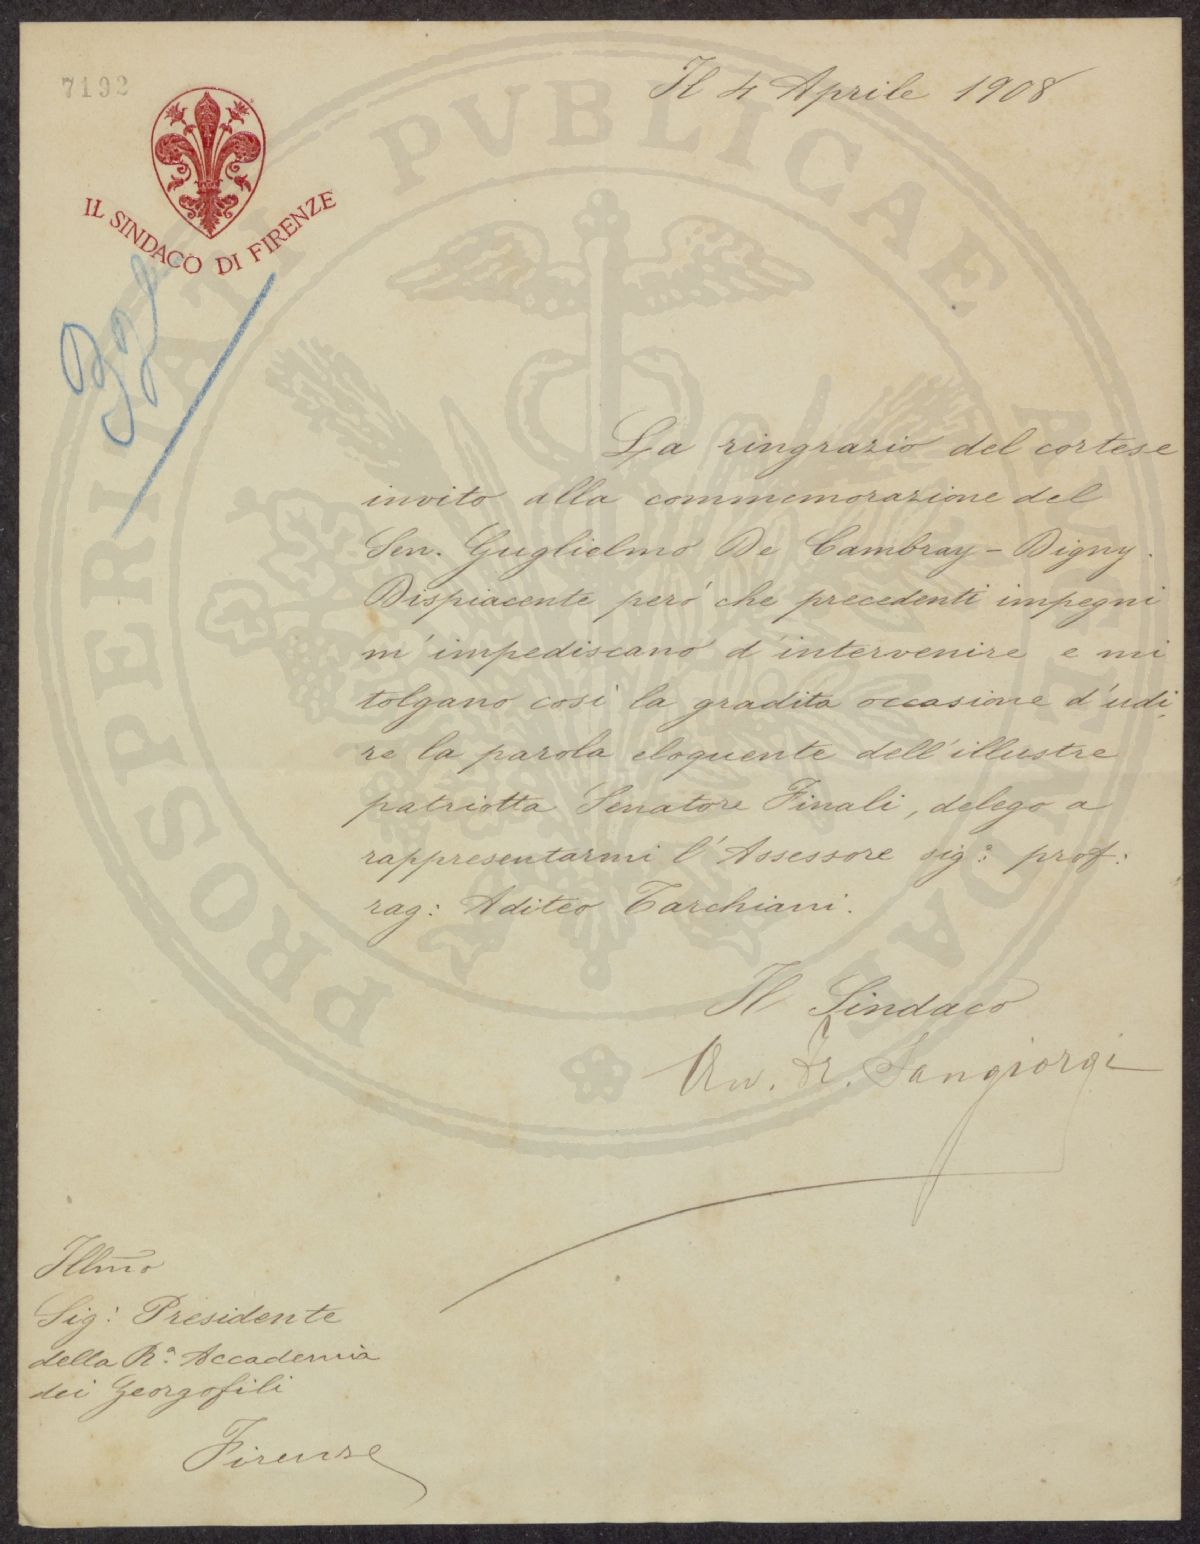 7192
Il 4 Aprile 1908
IL SINDACO DI FIRENZE
La ringrazio del cortese
invito alla commemorazione del
Sen. Guglielmo De Cambray-Digny.
Dispiacente però che precedenti impegni
m'impediscano d'intervenire e mi
tolgano così la gradita occasione d'udi-
re la parola eloquente dell'illustre
patriotta Senatore Finali, delego a
rappresentarmi l'Assessore sigr: prof:
rag: Aditeo Tarchiani.
Il Sindaco
Avv. Fr. Sangiorgi
Illmo
Sigr: Presidente
della Ra: Accademia
dei Georgofili
Firenze
PROSPERITATI PVBLICAE AVGENDAE